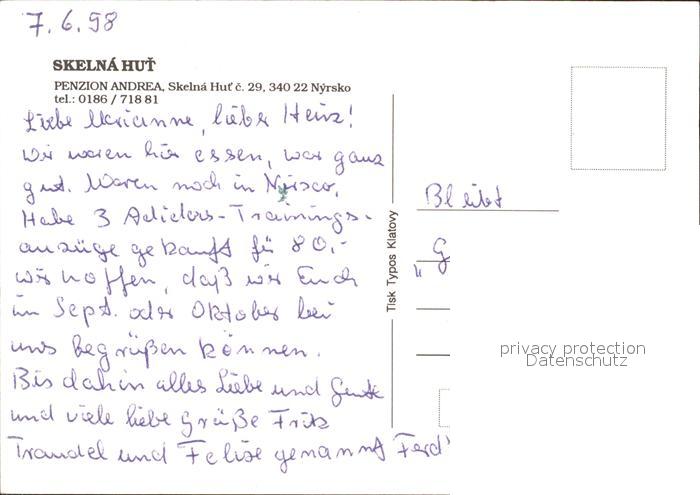 7.6.98
SKELNÁ HUŤ
PENZION ANDREA, Skelná Huť č. 29, 340 22 Nýrsko
tel.: 0186 / 718 81
Liebe Marianne, lieber Heinz!
Wir waren hier essen, war ganz
gut. Waren noch in Nirsco,
Habe 3 Adidas-Trainings-
anzüge gekauft für 80,-
Wir hoffen, daß wir Euch
im Sept. oder Oktober bei
uns begrüßen können.
Bis dahin alles Liebe und Gute
und viele liebe Grüße Fritz
Traudel und Felixe genannt Ferd
Tisk Typos Klatovy
Bleibt
G
privacy protection
Datenschutz